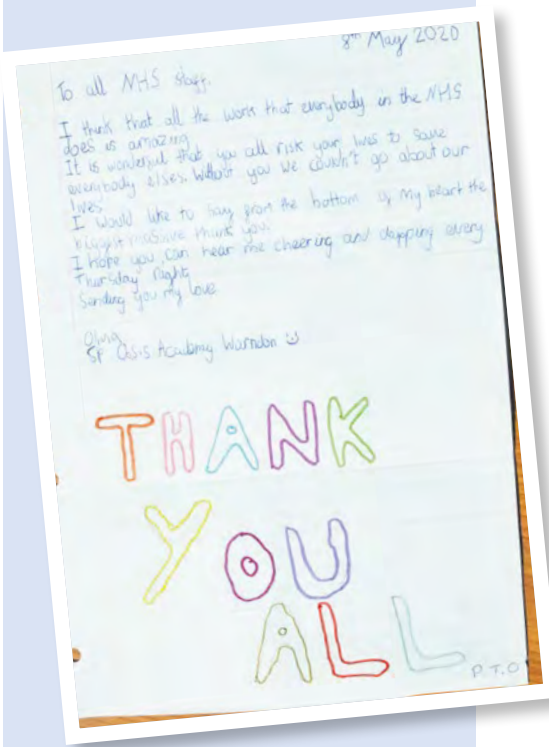 8th May 2020
To all NHS staff.
I think that all the work that everybody in the NHS
does is amazing.
It is wonderful that you all risk your lives to save
everybody elses. Without you we couldn't go about our
lives.
I would like to say from the bottom of my heart the
biggest massive thank you.
I hope you can hear me cheering and clapping every
Thursday night
Sending you my love
Olivia
5P Oasis Academy Warndon
THANK
YOU
ALL
P.T.O